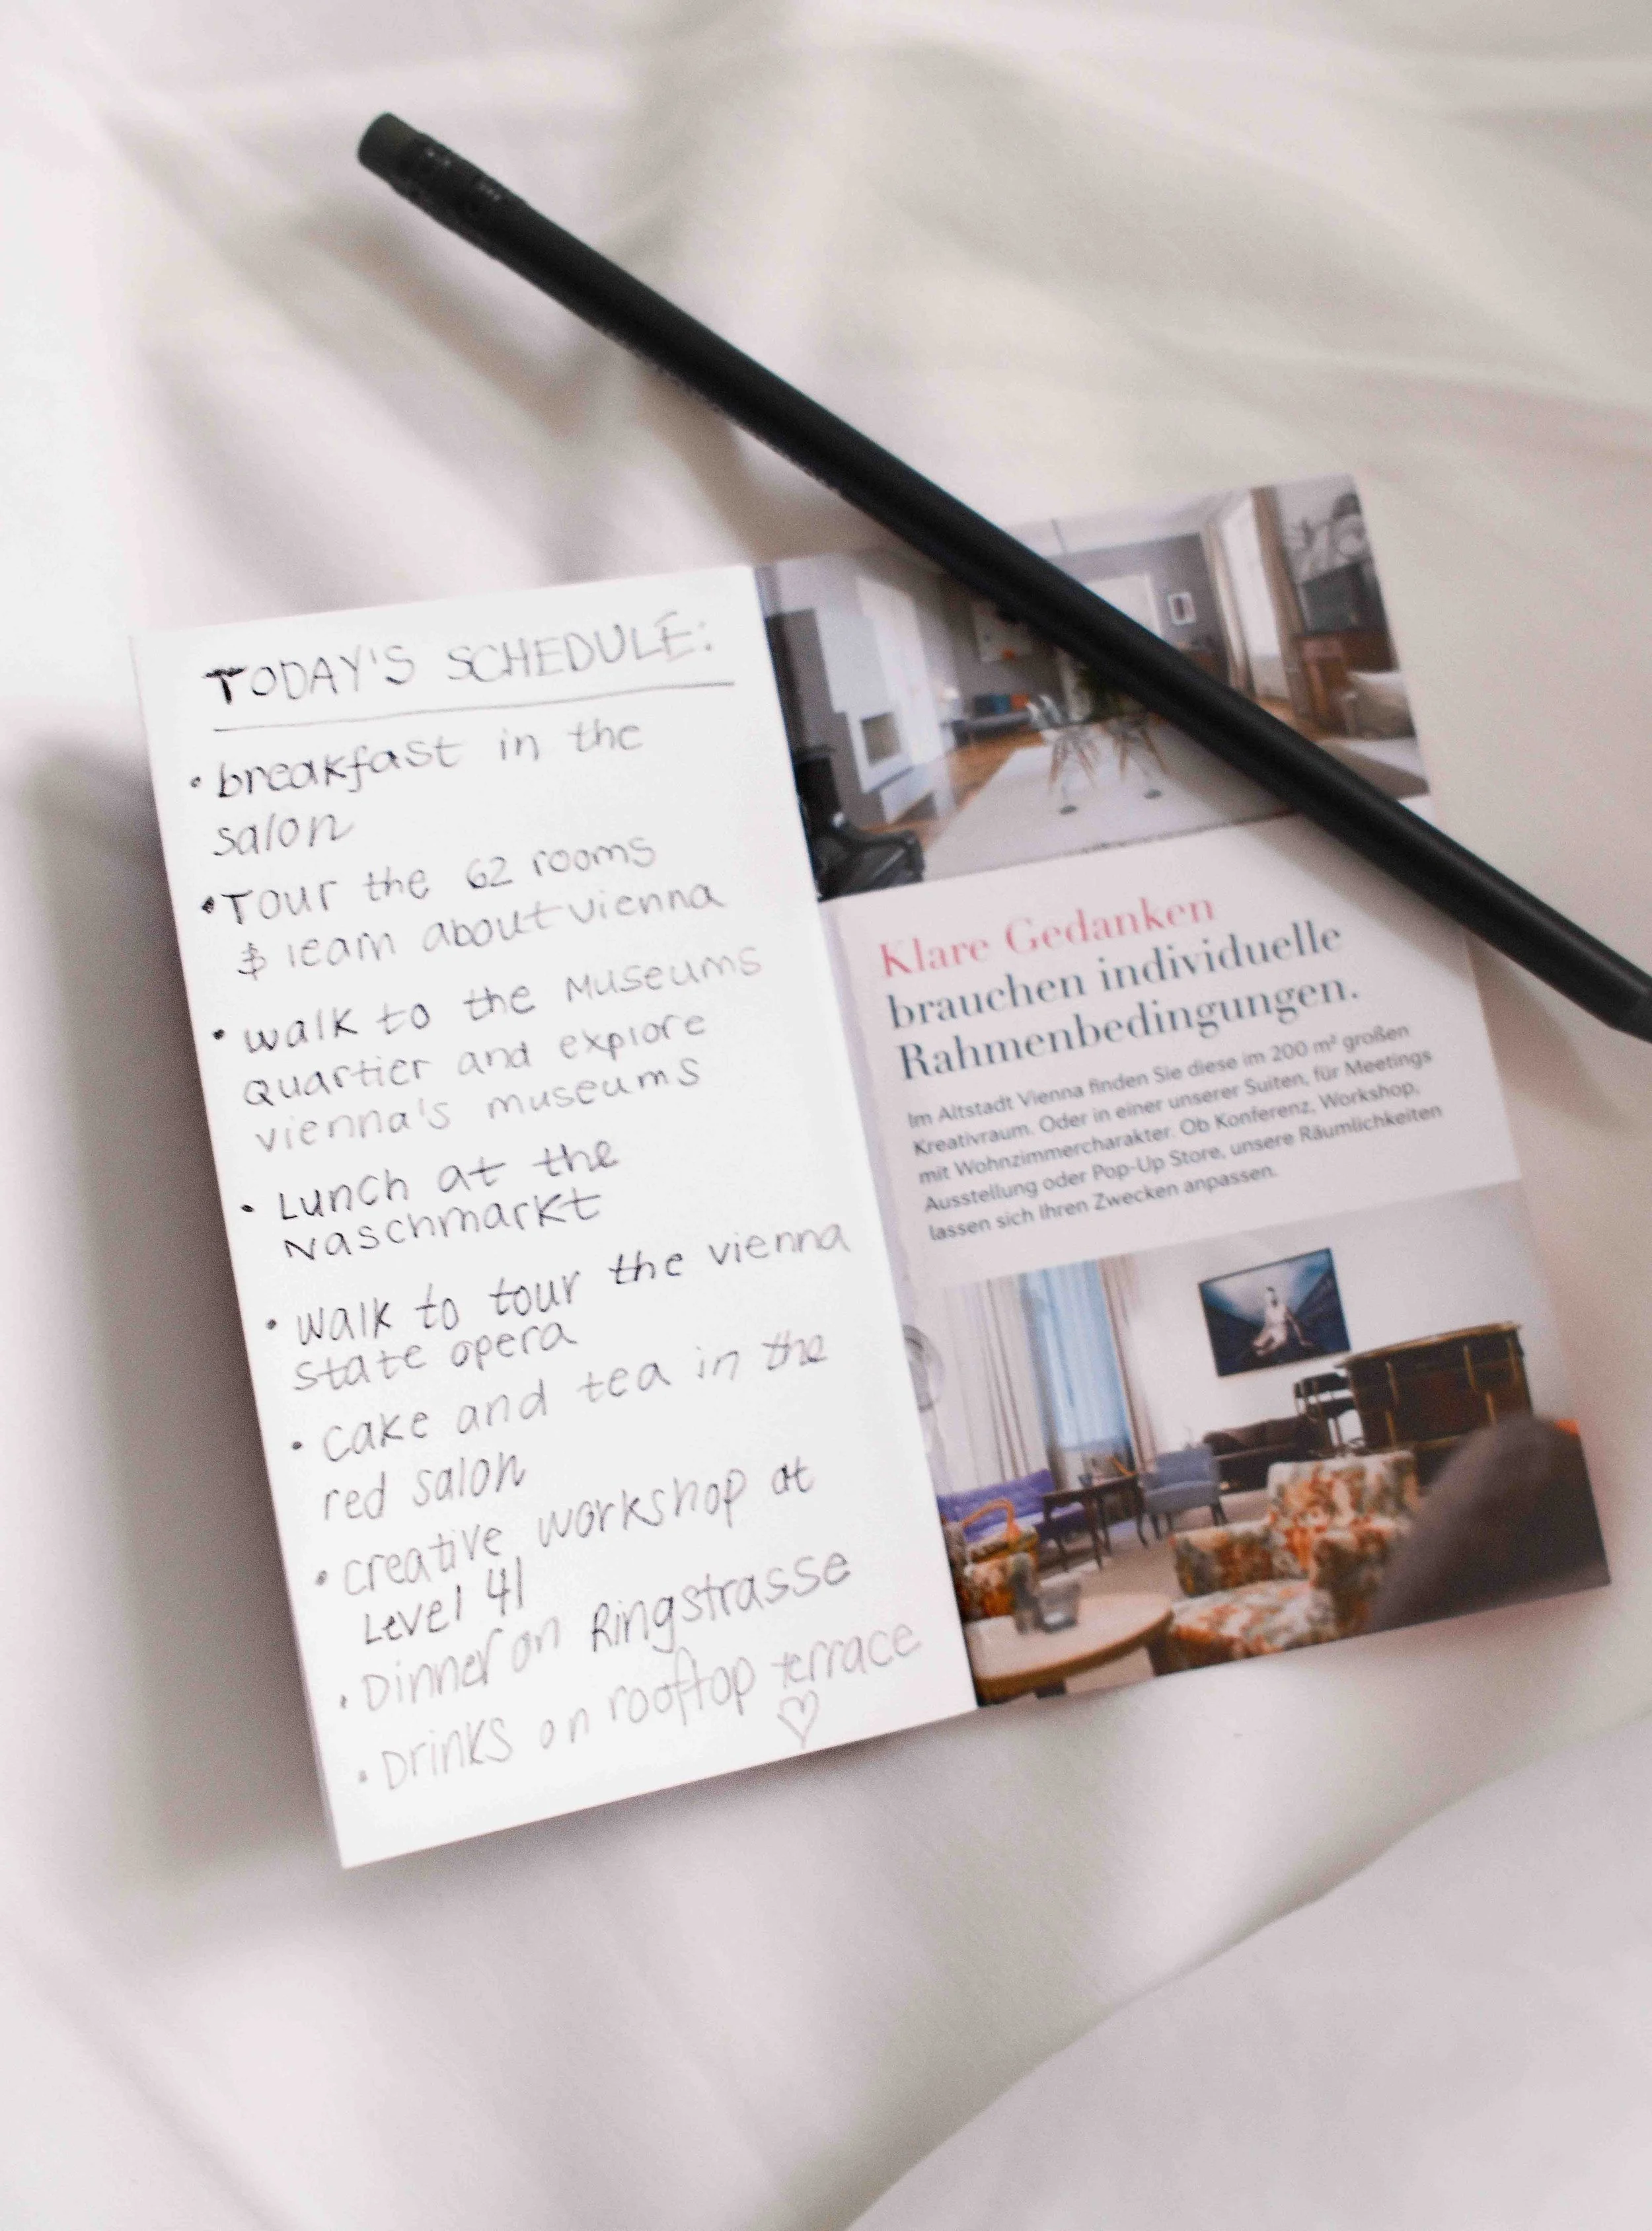 TODAY'S SCHEDULE:
• breakfast in the
salon
• Tour the 62 rooms
$ learn about vienna
• walk to the Museums
Quartier and explore
vienna's museums
• Lunch at the
Naschmarkt
• walk to tour the vienna
state opera
• cake and tea in the
red salon
• creative workshop at
Level 41
• Dinner on Ringstrasse
• Drinks on rooftop terrace
♡
Klare Gedanken
brauchen individuelle
Rahmenbedingungen.
Im Altstadt Vienna finden Sie diese im 200 m² großen
Kreativraum. Oder in einer unserer Suiten, für Meetings
mit Wohnzimmercharakter. Ob Konferenz, Workshop,
Ausstellung oder Pop-Up Store, unsere Räumlichkeiten
lassen sich Ihren Zwecken anpassen.